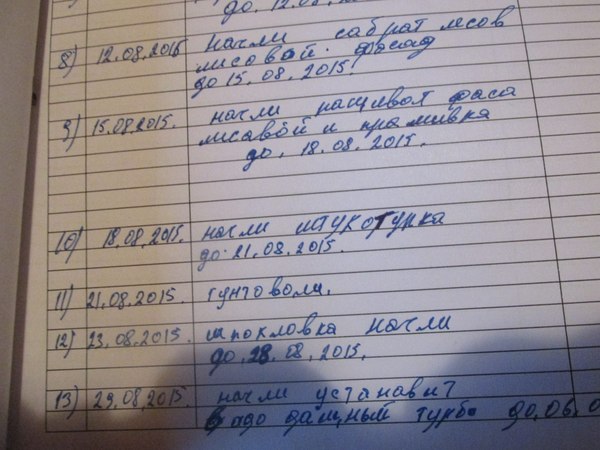 до 12.08.
8) 12.08.2015 начли сабрат лесов
лисовой фасад
до 15.08.2015.
9) 15.08.2015. начли расшевот фаса
лисавой и прамивка
до. 18.08.2015.
10) 18.08.2015. начли штукотурка
до. 21.08.2015.
11) 21.08.2015. гунтоволи.
12) 23.08.2015. шпокловка начли
до 28.08.2015.
13) 29.08.2015. начли установит
турб. до. 06.